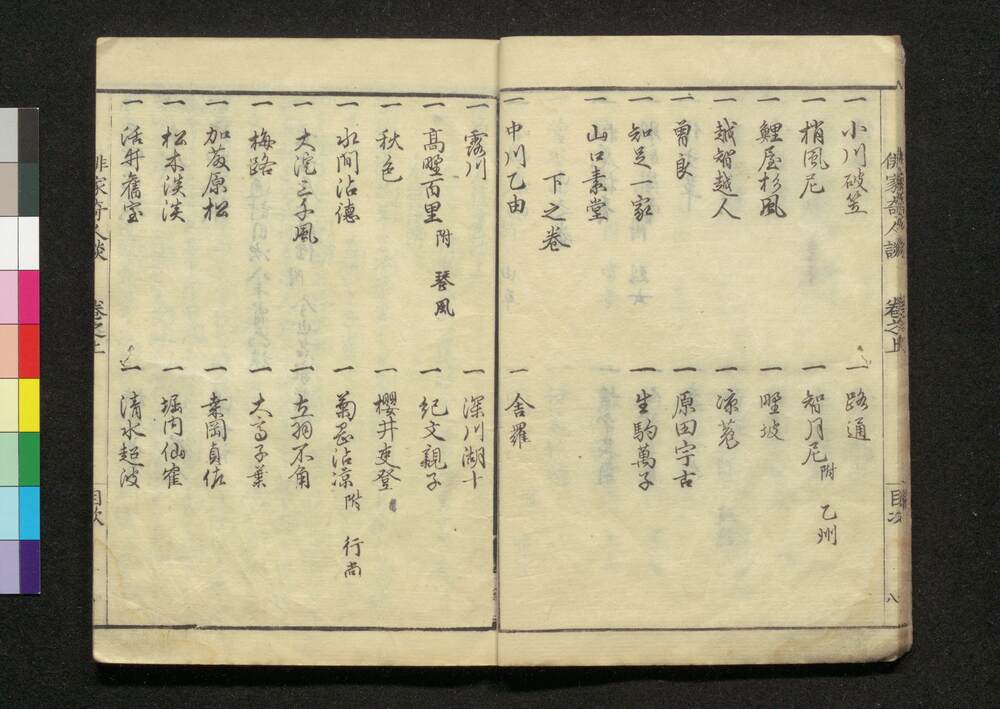 俳家奇人談 卷之上 目次 八
一 小川破笠 一 路通
一 梢風尼 一 智月尼 附 乙州
一 鯉屋杉風 一 野坡
一 越智越人 一 凉菟
一 曽良 一 原田宇古
一 知足一家 一 生駒萬子
一 山口素堂
下之卷
一 中川乙由 一 舎羅
一 露川 一 深川湖十
一 高野百里 附 琴風 一 紀文親子
一 秋色 一 櫻井吏登
一 水間沾德 一 菊岡沾凉 附 行尚
一 大淀三千風 一 立羽不角
一 梅路 一 大高子葉
一 加藤原松 一 桒岡貞佐
一 松木淡淡 一 堀内仙隺
一 活井舊室 一 清水超波
俳家奇人談 卷之上 目次